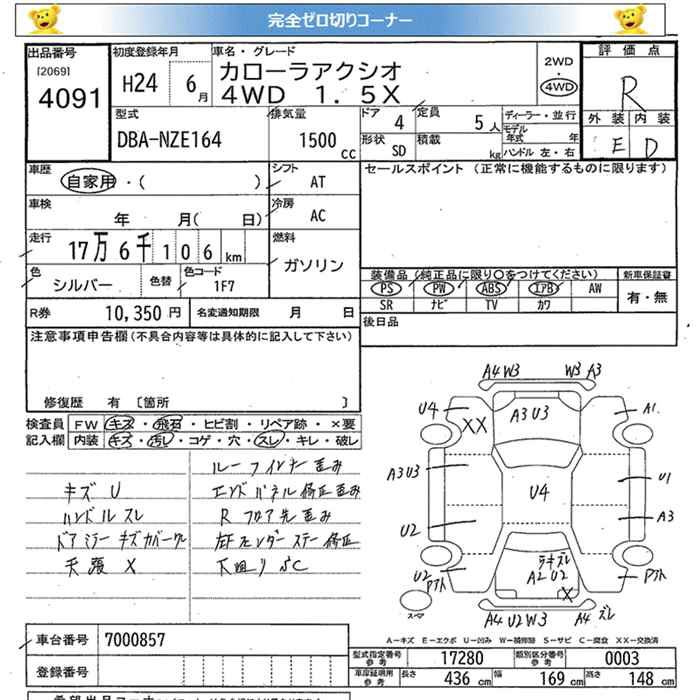 完全ゼロ切りコーナー
出品番号 初度登録年月 車名・グレード 評価点
[2069] 4091 H24 6月 カローラアクシオ 2WD
4WD 1.5X 4WD R
型式 排気量 ドア 4 定員 5人 ディーラー・並行 外装 内装
DBA-NZE164 1500cc 形状 SD 積載 kg モデル年式 年 E D
ハンドル 左・右
車歴 自家用・( ) シフト AT セールスポイント (正常に機能するものに限ります)
車検 年 月( 日) 冷房 AC
走行 17万6千106km 燃料 ガソリン
色 シルバー 色替 色コード 1F7 装備品(純正品に限り〇をつけてください) 新車保証書
PS PW ABS エアB AW 有・無
R券 10,350円 名変通知期限 月 日 SR ナビ TV カワ
注意事項申告欄(不具合内容等は具体的に記入して下さい) 後日品
修復歴 有 [箇所
検査員 FW キズ・飛石・ヒビ割・リペア跡・×要
記入欄 内装 キズ・汚レ・コゲ・穴・スレ・キレ・破レ
キズ U
ハンドル スレ
ドアミラー キズカバークレ
天張 X
ルーフインナー歪み
エンドパネル修正歪み
R フロア先歪み
左Fフェンダーステー修正
下廻り SC
A4 W3 W3 A3
U4 XX A3 U3 A1
A3 U3 U4 U1
U2 A3
U2 Pアト ラキズレ A2 U2 X Pアト
スペア A4 U2 W3 A4 ズレ
A-キズ E-エクボ U-凹み W-補修跡 S-サビ C-腐食 XX-交換済
車台番号 7000857
型式指定番号 参考 17280 類別区分番号 参考 0003
登録番号
車庫証明用 参考 長さ 436 cm 幅 169 cm 高さ 148 cm